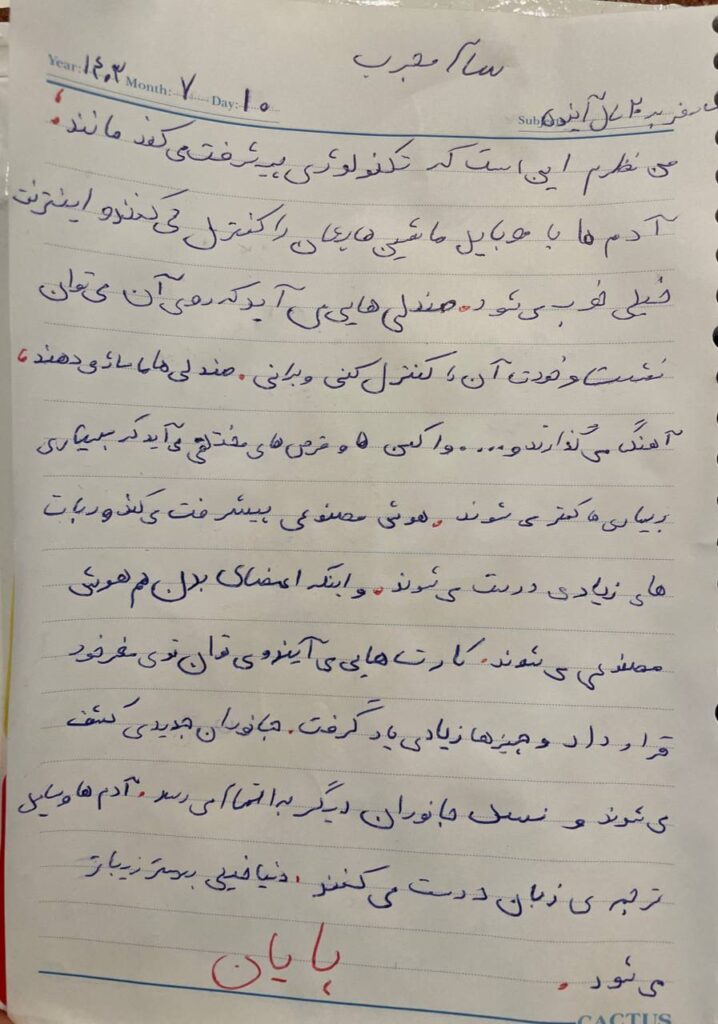 سنا مجرب
Year: ۱۴۰۳ Month: ۷ Day: ۱۰
Subject: سفر به ۲۰ سال آینده
من نظرم این است که تکنولوژی پیشرفت می کند مانند:
آدم ها با موبایل ماشین هایمان را کنترل می کنند و اینترنت
خیلی خوب می شود. صندلی هایی می آید که روی آن می توان
نشست و خودت آن را کنترل کنی و برانی. صندلی ها ماساژ می دهند،
آهنگ می گذارند و.... واکسن ها و قرص های مختلفی می آید که بیماری
بیماری ها کمتر می شوند. هوش مصنوعی پیشرفت می کند و ربات
های زیادی درست می شوند. و اینکه اعضای بدن هم هوش
مصنوعی می شوند. کارت هایی می آیند و می توان توی مغز خود
قرار داد و چیزها زیادی یاد گرفت. جانوران جدیدی کشف
می شوند و نسل جانوران دیگر به اتمام می رسد. آدم ها وسایل
ترجمه ی زبان درست می کنند. دنیا خیلی بهتر زیباتر
می شود.
پایان
CACTUS